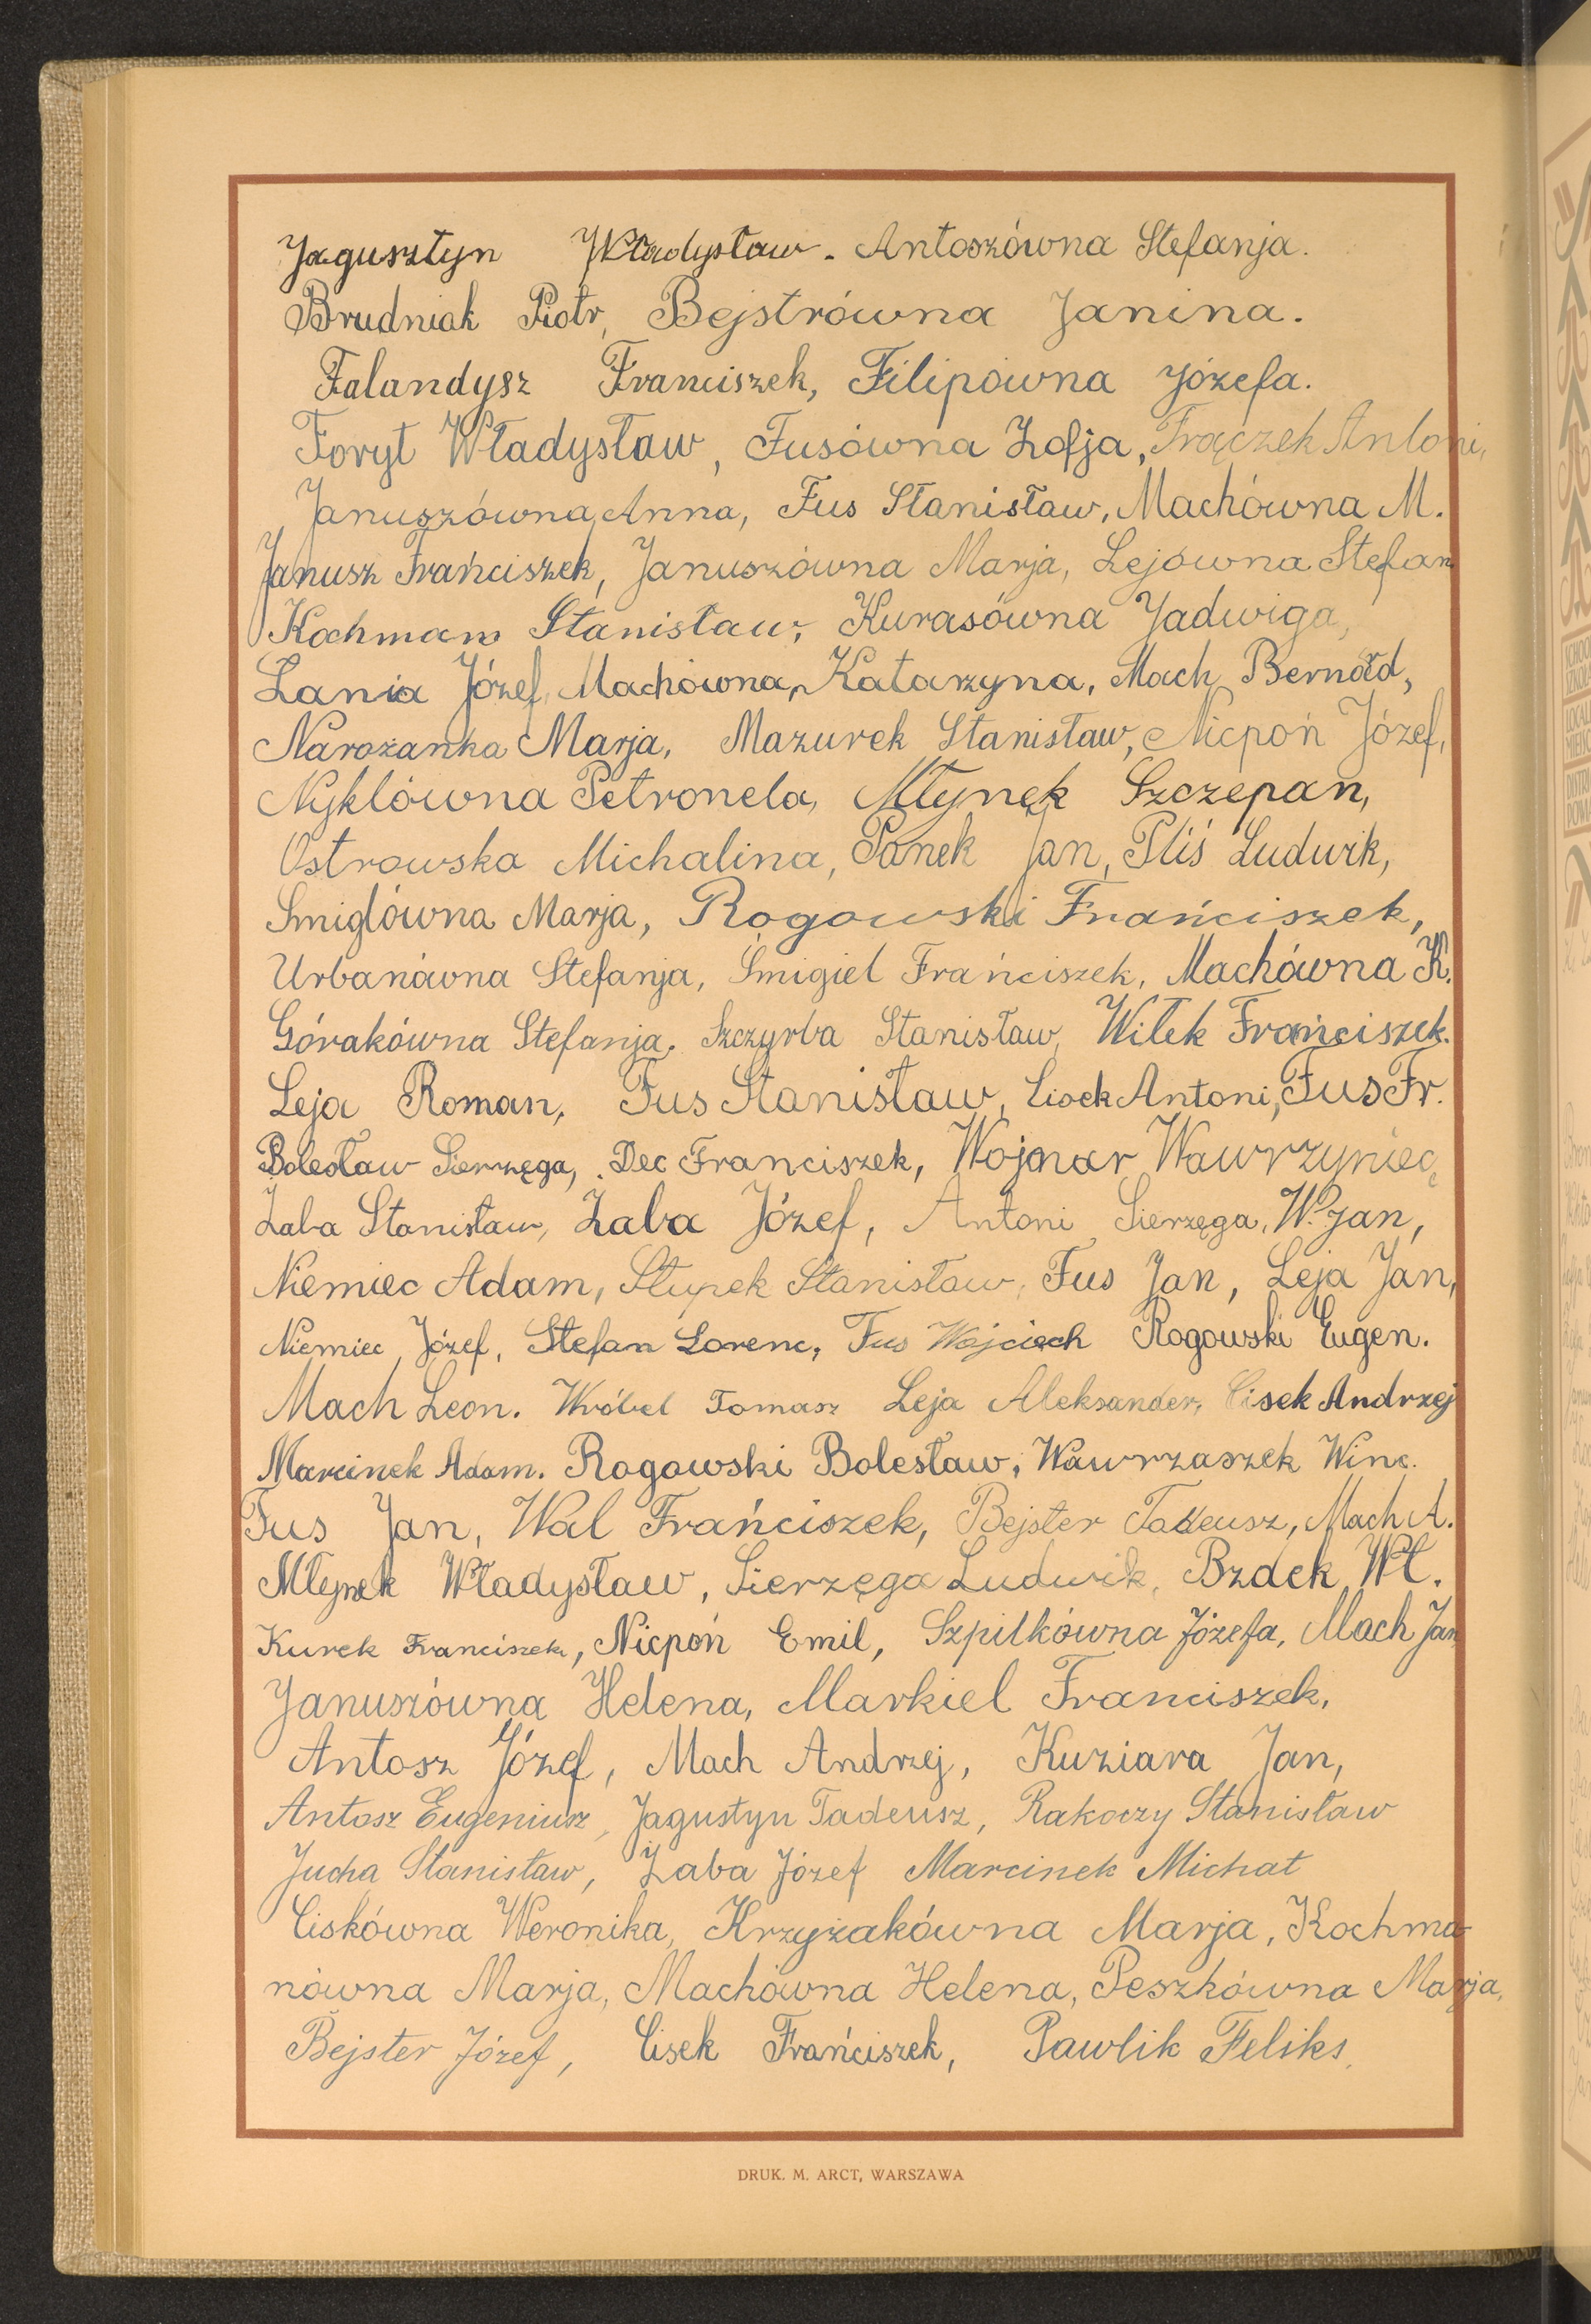 Jagusztyn Władysław. Antoszówna Stefanja.
Brudniak Piotr, Bejstrówna Janina.
Falandysz Franciszek, Filipówna Józefa.
Foryt Władysław, Fusówna Zofja, Trączek Antoni,
Januszówna Anna, Fus Stanisław, Machówna M.
Janusz Frańciszek, Januszówna Marja, Lejówna Stefan
Kochmam Stanisław, Kurasówna Jadwiga,
Lania Józef, Machówna, Katarzyna, Mach Bernard,
Narożanka Marja, Mazurek Stanisław, Nicpoń Józef,
Nyklówna Petronela, Młynek Szczepan,
Ostrowska Michalina, Panek Jan, Pliś Ludwik,
Smiglówna Marja, Rogowski Frańciszek,
Urbanówna Stefanja, Śmigiel Frańciszek, Machówna K.
Górakówna Stefanja. Szczyrba Stanisław, Wilek Frańciszek.
Leja Roman, Fus Stanisław, Cisek Antoni, Fus Fr.
Bolesław Sierzęga, Dec Franciszek, Wojnar Wawrzyniec,
Żaba Stanisław, Żaba Józef, Antoni Sierzęga, W. Jan,
Niemiec Adam, Słupek Stanisław, Fus Jan, Leja Jan,
Niemiec Józef, Stefan Lorenc, Fus Wojciech Rogowski Eugen.
Mach Leon. Wróbel Tomasz Leja Aleksander, Cisek Andrzej
Marcinek Adam. Rogowski Bolesław, Wawrzaszek Winc.
Fus Jan, Wal Frańciszek, Bejster Tadeusz, Mach A.
Młynek Władysław, Sierzęga Ludwik, Bzdek Wł.
Kurek Franciszek, Nicpoń Emil, Szpilkówna Józefa, Mach Jan
Januszówna Helena, Markiel Franciszek,
Antosz Józef, Mach Andrzej, Kuziara Jan,
Antosz Eugeniusz, Jagustyn Tadeusz, Rakoczy Stanisław
Jucha Stanisław, Żaba Józef Marcinek Michał
Ciskówna Weronika, Krzyżakówna Marja, Kochma-
nówna Marja, Machówna Helena, Peszkówna Marja,
Bejster Józef, Cisek Frańciszek, Pawlik Feliks,
DRUK. M. ARCT, WARSZAWA